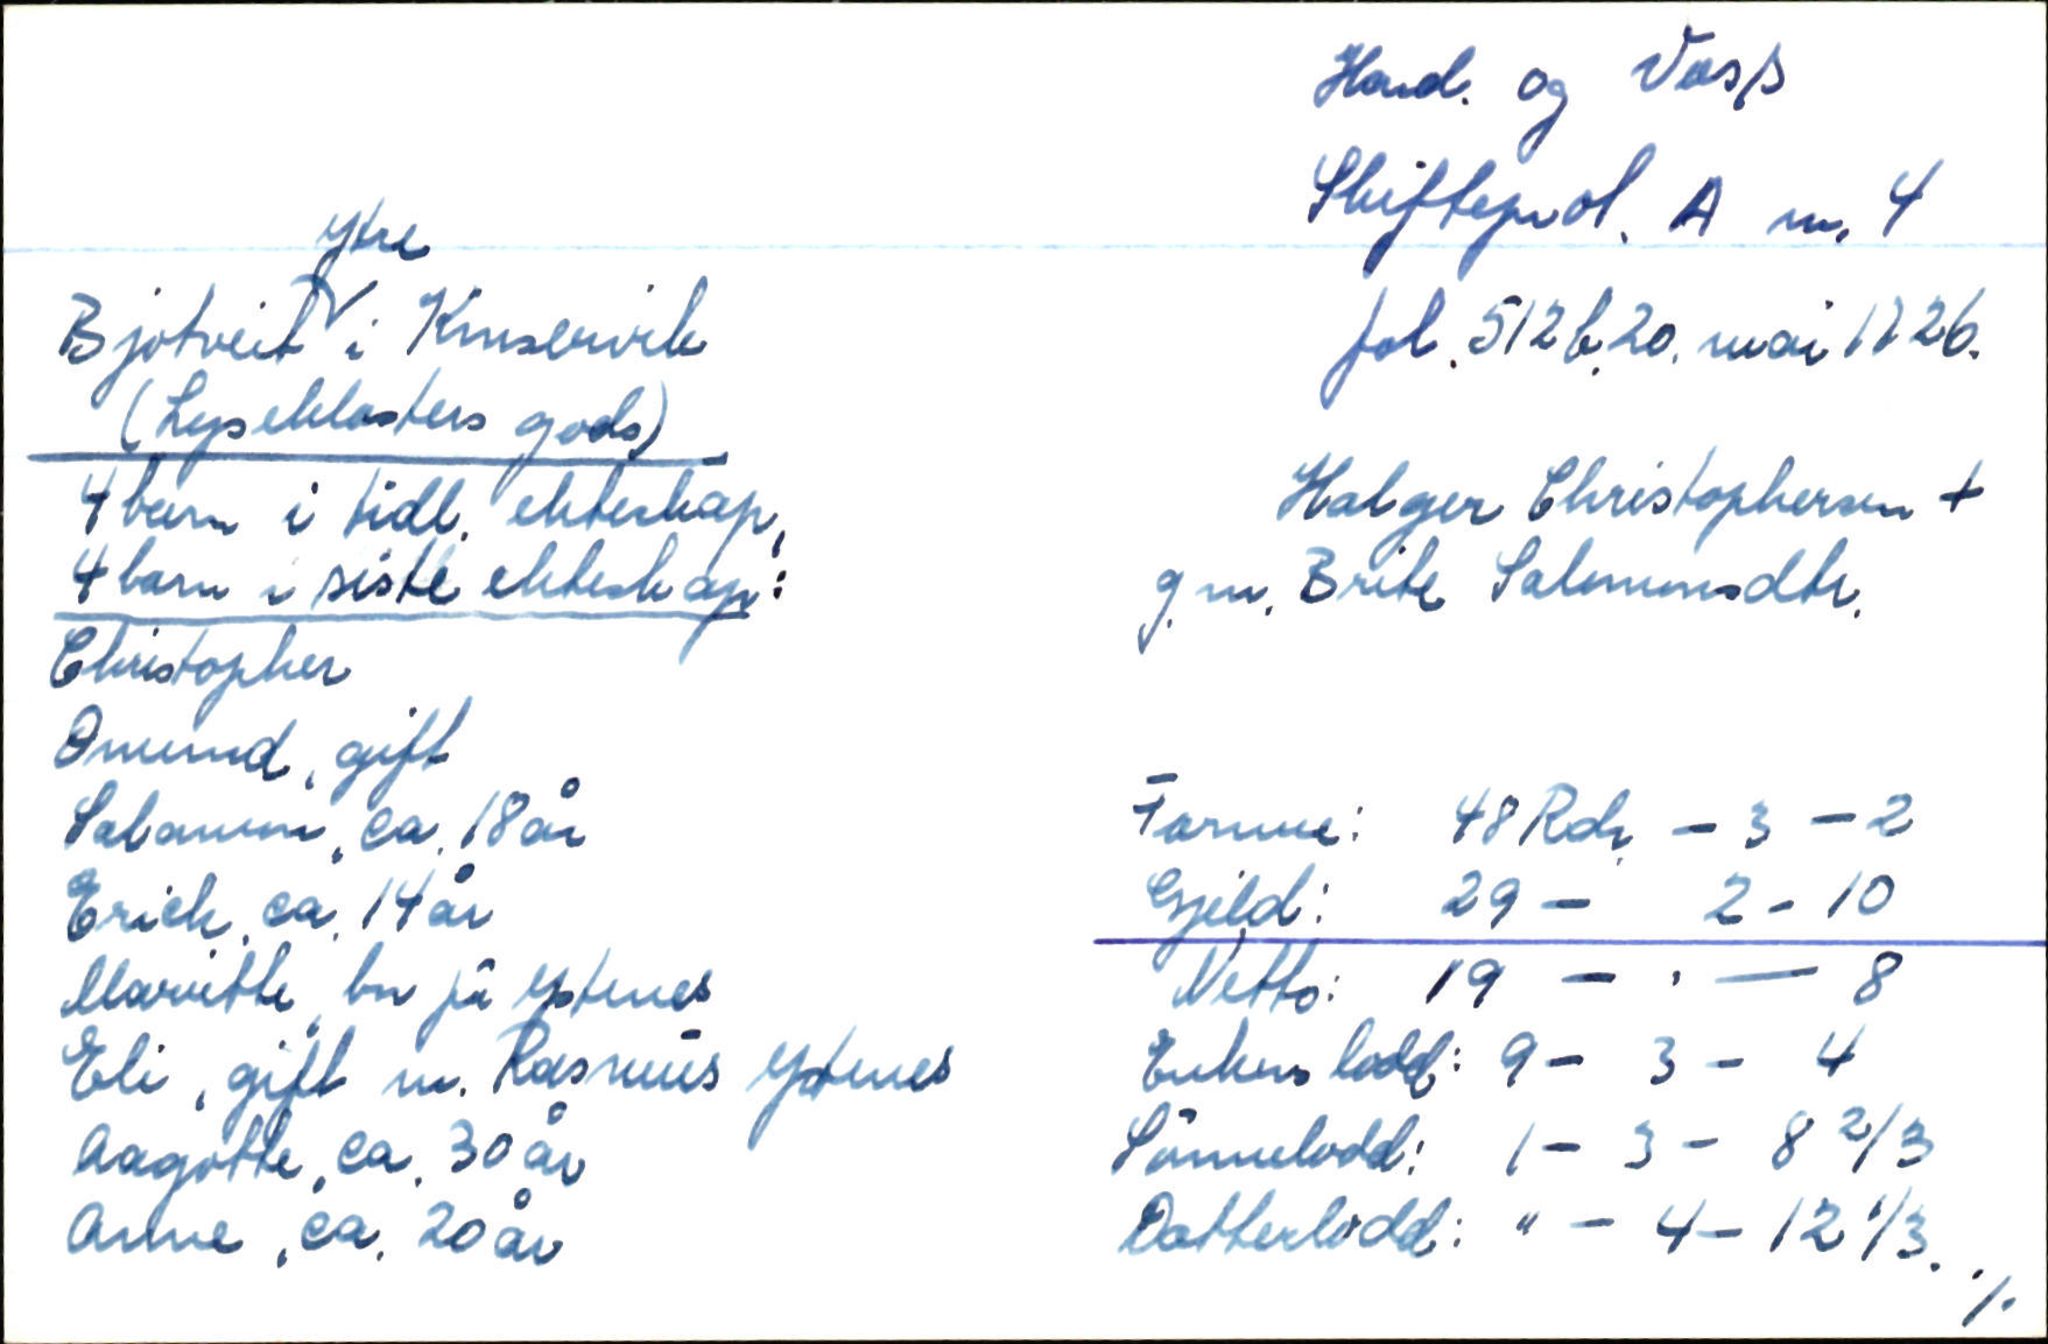 Hard. og Voss
Skifteprot. A nr. 4
fol. 512b, 20. mai 1726.
ytre
Bjotveit i Kinservik
(Lyseklosters gods)
4 barn i tidl. ekteskap,
4 barn i siste ekteskap:
Christopher
Omund, gift
Salamon, ca. 18 år
Erich, ca. 14 år
Maritte, bu på ystenes
Eli, gift m. Rasmus ystenes
Aagotte, ca. 30 år
Anne, ca. 20 år
Halger Christophersen +
g.m. Brite Salomonsdtr.
Formue: 48 Rdr. - 3 - 2
Gjeld: 29 - 2 - 10
Netto: 19 - . - 8
Enkens lodd: 9 - 3 - 4
Sönnelodd: 1 - 3 - 8 2/3
Datterlodd: " - 4 - 12 1/3.
./.